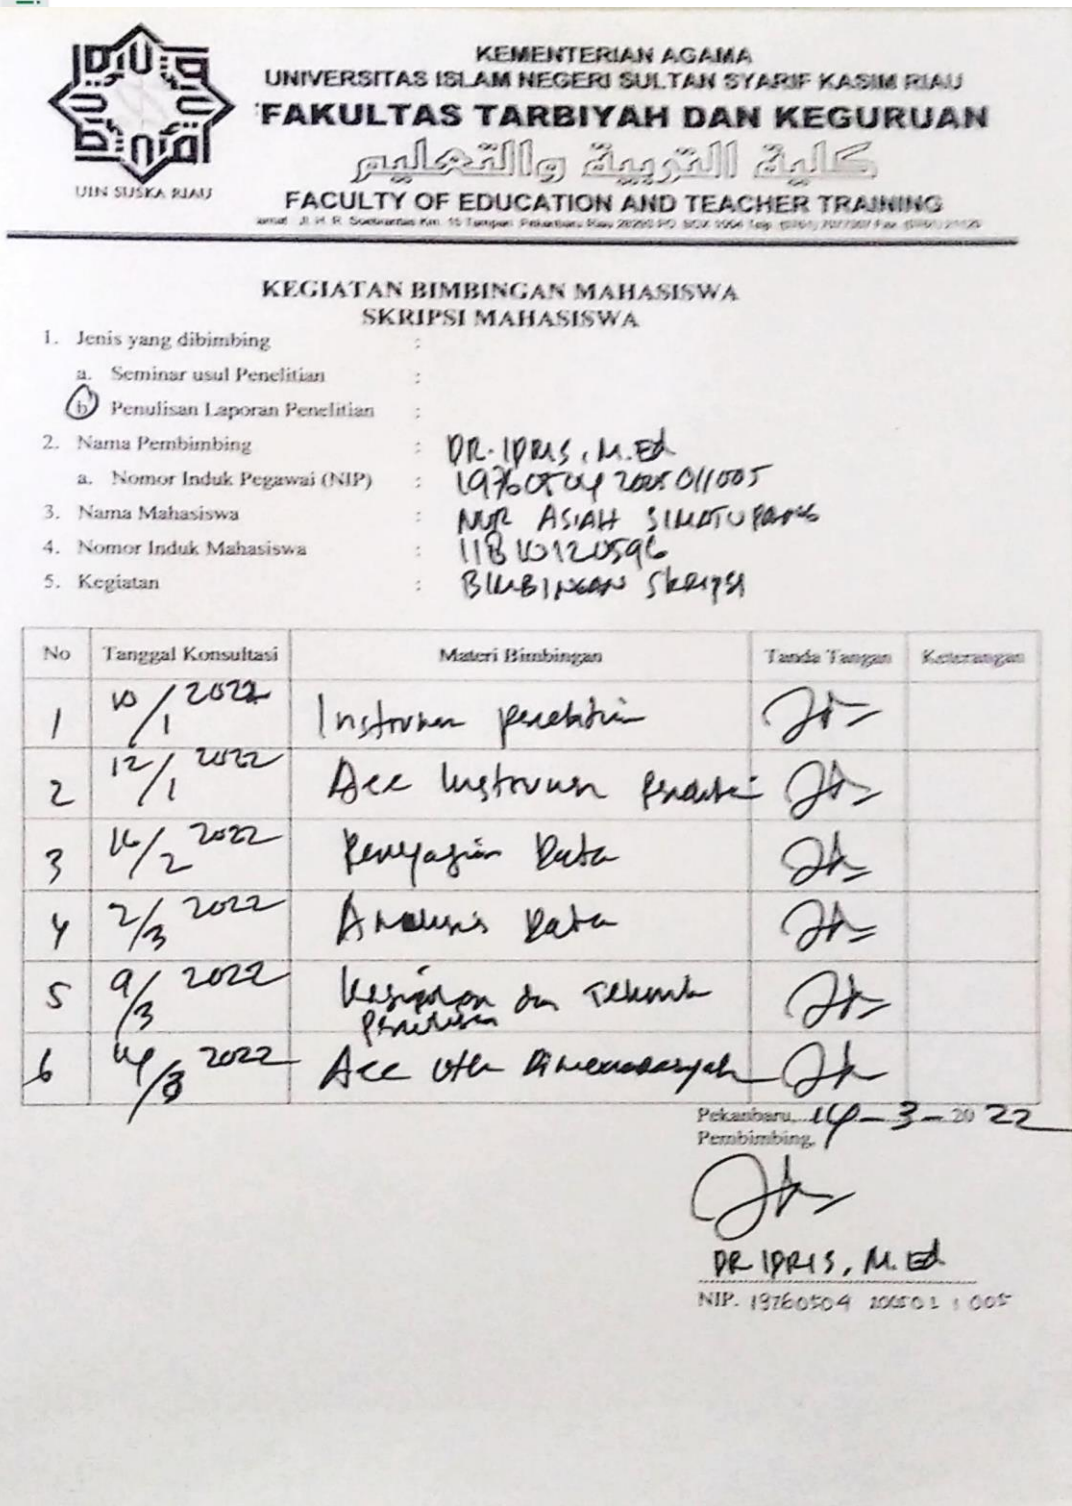 UIN SUSKA RIAU
KEMENTERIAN AGAMA
UNIVERSITAS ISLAM NEGERI SULTAN SYARIF KASIM RIAU
FAKULTAS TARBIYAH DAN KEGURUAN
كلية التربية والتعليم
FACULTY OF EDUCATION AND TEACHER TRAINING
KEGIATAN BIMBINGAN MAHASISWA
SKRIPSI MAHASISWA
1. Jenis yang dibimbing :
a. Seminar usul Penelitian :
b Penulisan Laporan Penelitian :
2. Nama Pembimbing : DR. IDRIS, M.Ed
a. Nomor Induk Pegawai (NIP) : 19760504 200501 1005
3. Nama Mahasiswa : NUR ASIAH SIMATUPANG
4. Nomor Induk Mahasiswa : 11810120596
5. Kegiatan : BIMBINGAN Skripsi
No Tanggal Konsultasi Materi Bimbingan Tanda Tangan Keterangan
1 10/1 2022 Instrumen penelitian
2 12/1 2022 Acc Instrumen penelitian
3 16/2 2022 Penyajian Data
4 2/3 2022 Analisis Data
5 9/3 2022 Kesimpulan dan Teknik
Penulisan
6 14/3 2022 Acc utk Dimunaqasyah
Pekanbaru, 14-3-2022
Pembimbing,
DR IDRIS, M.Ed
NIP. 19760504 200501 1 005